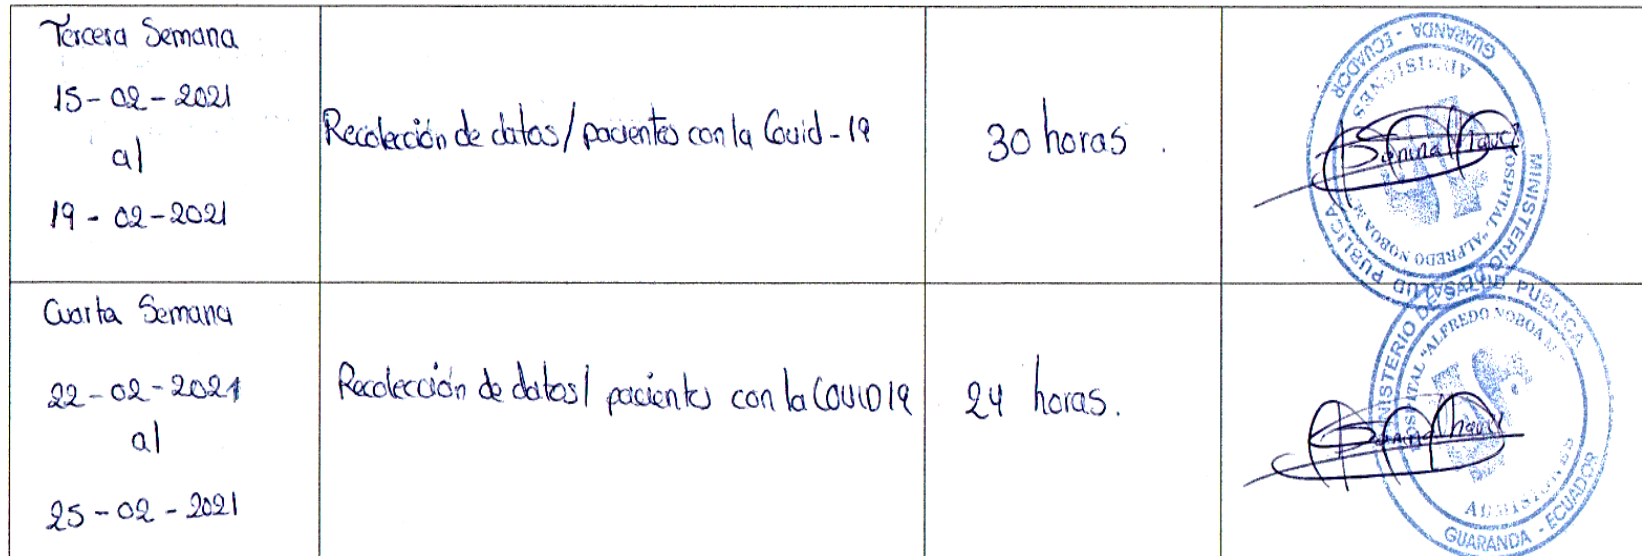 Tercera Semana
15-02-2021
al
19-02-2021
Recolección de datos/pacientes con la Covid-19
30 horas.
MINISTERIO DE SALUD PUBLICA
HOSPITAL "ALFREDO NOBOA M"
ADMISIONES
GUARANDA - ECUADOR
Cuarta Semana
22-02-2021
al
25-02-2021
Recolección de datos/ pacientes con la COVID19
24 horas.
MINISTERIO DE SALUD PUBLICA
HOSPITAL "ALFREDO NOBOA M"
ADMISIONES
GUARANDA - ECUADOR